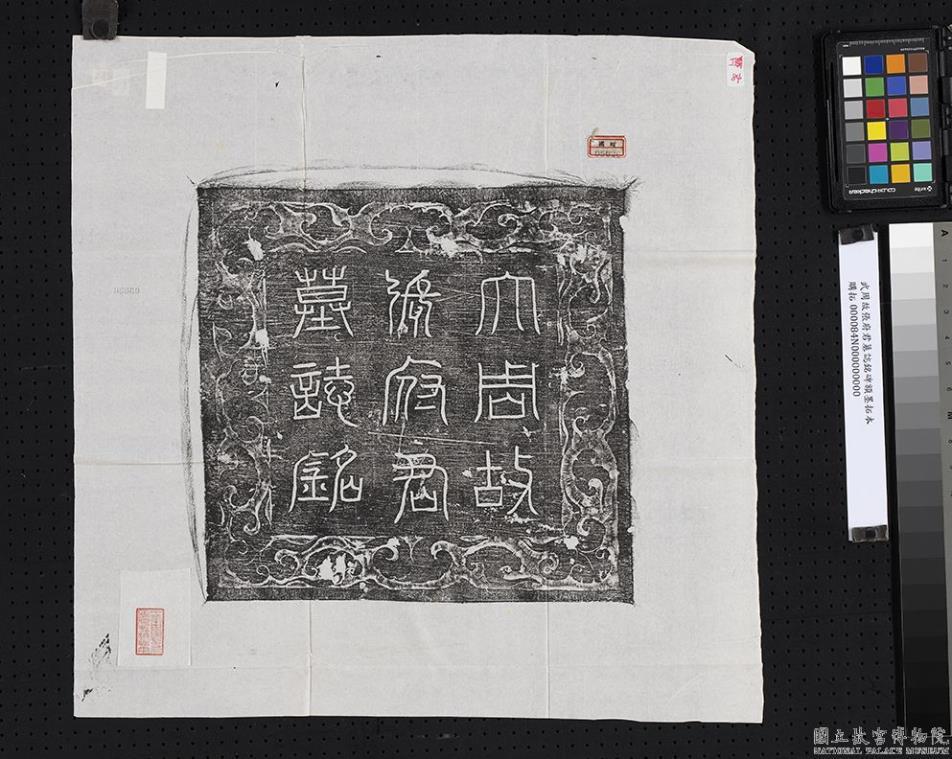 大周故
張府君
墓誌銘
武周故張府君墓誌銘碑額墨拓本
購拓 000084N000000000
國立故宮博物院
NATIONAL PALACE MUSEUM